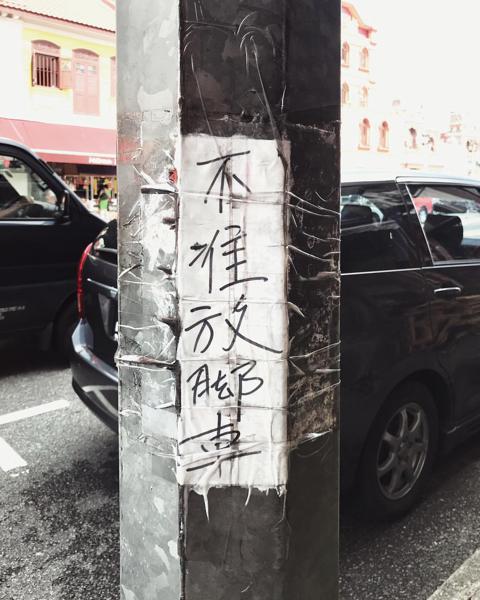 不准放腳車